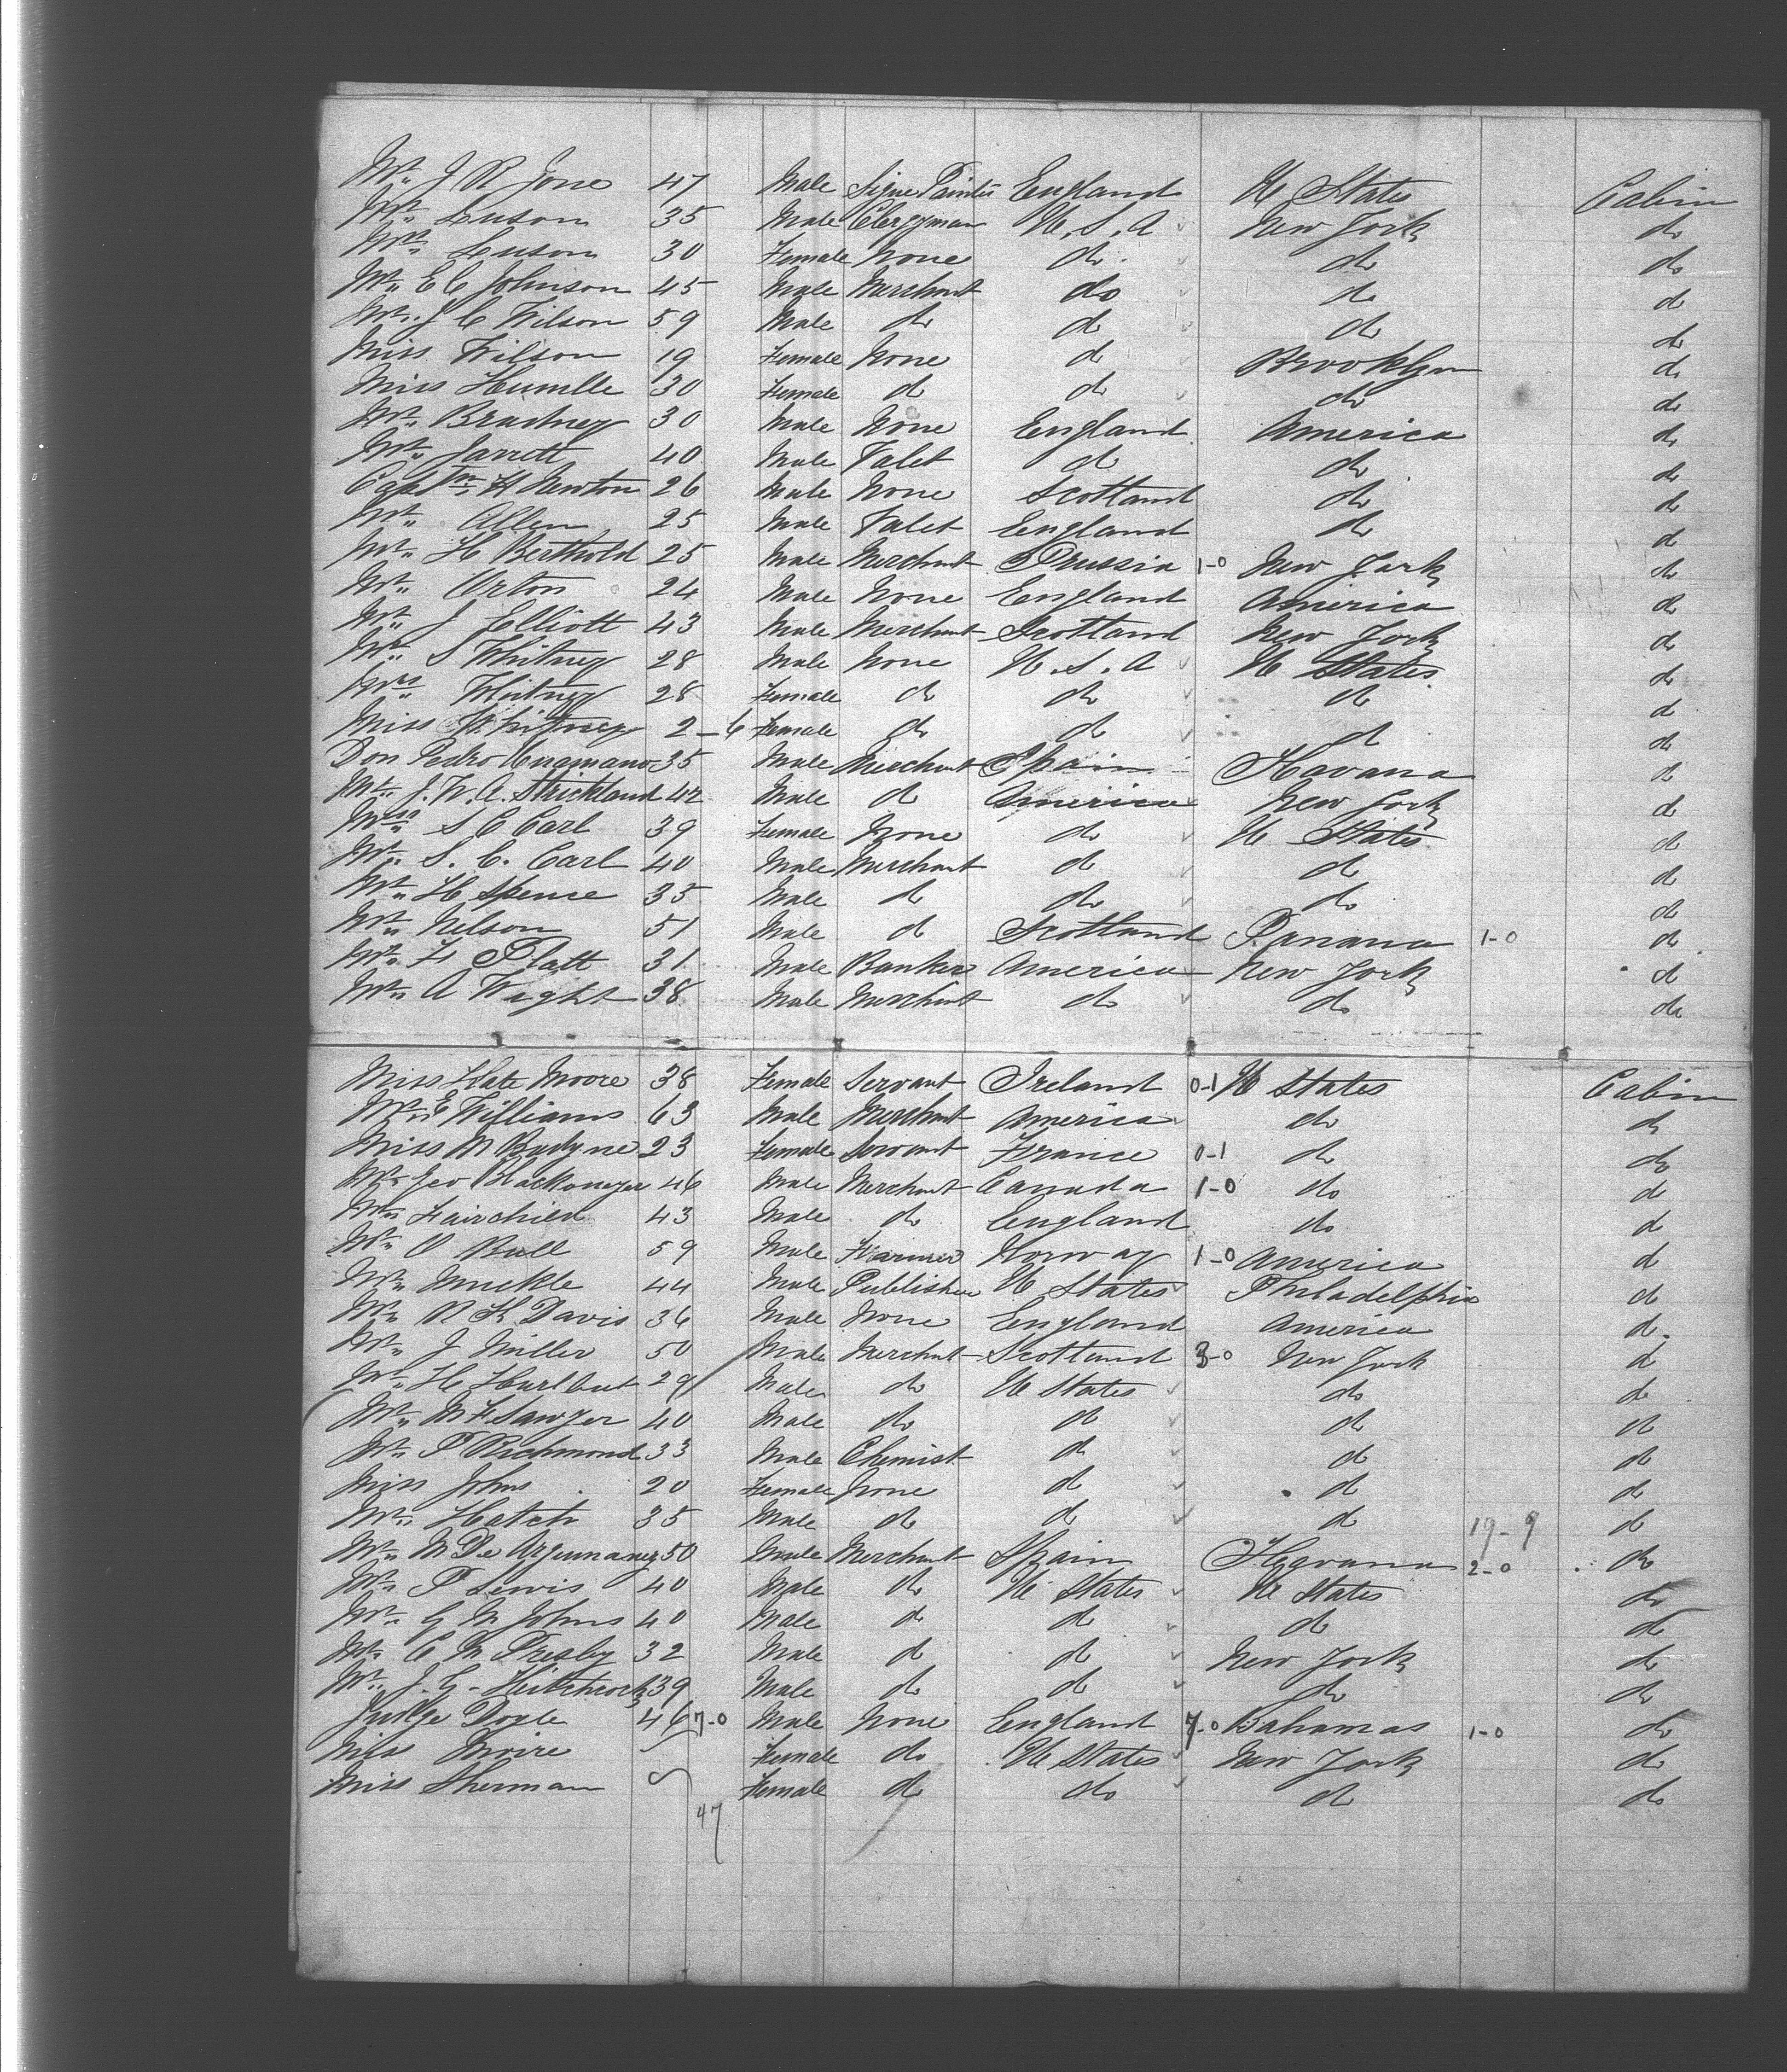 Mr. J R Jone 47 Male Signe Painter England U States Cabin
Mr. Leuson 35 Male Clergyman U.S.A New York do
Mrs. Leuson 30 Female None do do do
Mr. E C Johnson 45 Male Merchant do do do
Mr. J C Wilson 59 Male do do do do
Miss Wilson 19 Female None do Brooklyn do
Miss Humlle 30 Female do do do do
Mr. Bradney 30 Male None England America do
Mr. Jarrett 40 Male Valet do do do
Captn. H Newton 26 Male None Scotland do do
Mr. Allen 25 Male Valet England do do
Mr. H Berthold 25 Male Merchant Prussia 1-0 New York do
Mr. Orton 24 Male None England America do
Mr. J Elliott 43 Male Merchant Scotland New York do
Mr. S Whitney 28 Male None U.S.A U States do
Mrs. Whitney 28 Female do do do do
Miss Whitney 2-6 Female do do do do
Don Pedro 35 Male Merchant Spain Havana do
Mr. J. W. A. Strickland 42 Male do America New York do
Mrs. S C Carl 39 Female None do U States do
Mr. S. C. Carl 40 Male Merchant do do do
Mr. H Spence 35 Male do do do do
Mr. Nelson 51 Male do Scotland Panana 1-0 do
Mr. F Platt 31 Male Banker America New York do
Mr. A Wight 38 Male Merchant do do do
Miss Kate Moore 38 Female Servant Ireland 0-1 U States Cabin
Mr. E Williams 63 Male Merchant America do do
Miss M 23 Female Servant France 0-1 do do
Mr. Geo 46 Male Merchant Canada 1-0 do do
Mr. Fairchild 43 Male do England do do
Mr. O Bull 59 Male Farmer Norway 1-0 America do
Mr. Muckle 44 Male Publisher U States Philadelphia do
Mr. R H Davis 36 Male None England America do
Mr. J Miller 50 Male Merchant Scotland 3-0 New York do
Mr. H Hurlbut 29 Male do U States do do
Mr. M F Sawyer 40 Male do do do do
Mr. P Richmond 33 Male Chemist do do do
Miss Johns 20 Female None do do do
Mr. Hatch 35 Male do do do 19-9 do
Mr. M De 50 Male Merchant Spain Havana 2-0 do
Mr. P Lewis 40 Male do U States U States do
Mr. G M Johns 40 Male do do do do
Mr. C M Presby 32 Male do do New York do
Mr. J. G. Hitchcock 39 Male do do do do
Judge Doyle 46 7-0 Male None England 7-0 Bahamas 1-0 do
Miss Moire Female do U States New York do
Miss Sherman Female do do do do
47